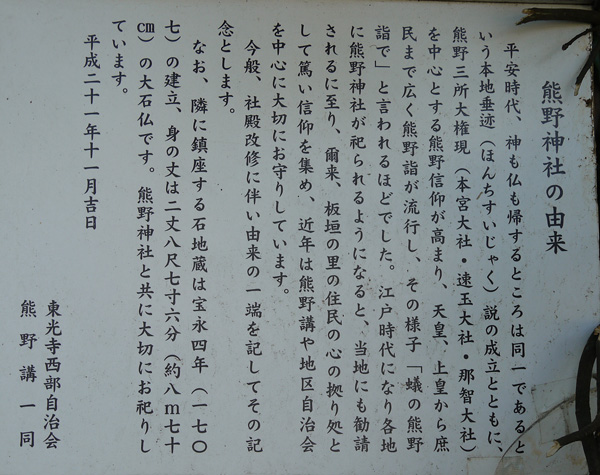 熊野神社の由来
平安時代、神も仏も帰するところは同一であると
いう本地垂迹(ほんちすいじゃく)説の成立とともに、
熊野三所大権現(本宮大社・速玉大社・那智大社)
を中心とする熊野信仰が高まり、天皇、上皇から庶
民まで広く熊野詣が流行し、その様子「蟻の熊野
詣で」と言われるほどでした。江戸時代になり各地
に熊野神社が祀られるようになると、当地にも勧請
されるに至り、爾来、板垣の里の住民の心の拠り処と
して篤い信仰を集め、近年は熊野講や地区自治会
を中心に大切にお守りしています。
今般、社殿改修に伴い由来の一端を記してその記
念とします。
なお、隣に鎮座する石地蔵は宝永四年(一七〇
七)の建立、身の丈は二丈八尺七寸六分(約八m七十
cm)の大石仏です。熊野神社と共に大切にお祀りし
ています。
平成二十一年十一月吉日
東光寺西部自治会
熊野講一同